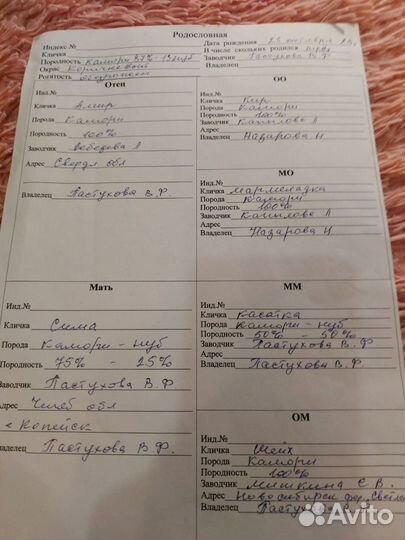 Родословная
Индекс №
Кличка
Породность Камори 87% - 13 нуб
Окрас Коричневый
Рогатость
Дата рождения 23 октября
В числе скольких родился
Заводчик Пастухова В.Ф
Владелец
Отец
Кличка Амир
Порода Камори
Породность 100%
Заводчик Лебедева Л
Адрес Свердл обл
Владелец Пастухова В.Ф.
ОО
Кличка Кир
Порода Камори
Породность 100%
Заводчик
Адрес
Владелец Назарова Н
МО
Кличка Мармеладка
Порода Камори
Породность 100%
Заводчик
Адрес
Владелец Назарова Н
Мать
Инд.№
Кличка Сима
Порода Камори - нуб
Породность 75% - 25%
Заводчик Пастухова В.Ф
Адрес Челяб обл
г Копейск
Владелец Пастухова В.Ф.
ММ
Инд.№
Кличка Касатка
Порода Камори - нуб
Породность 50% - 50%
Заводчик Пастухова В.Ф
Адрес
Владелец Пастухова В.Ф
ОМ
Инд.№
Кличка Шейх
Порода Камори
Породность 100%
Заводчик Мишкина С.В.
Адрес Новосибирск
Владелец Пастухова
Avito